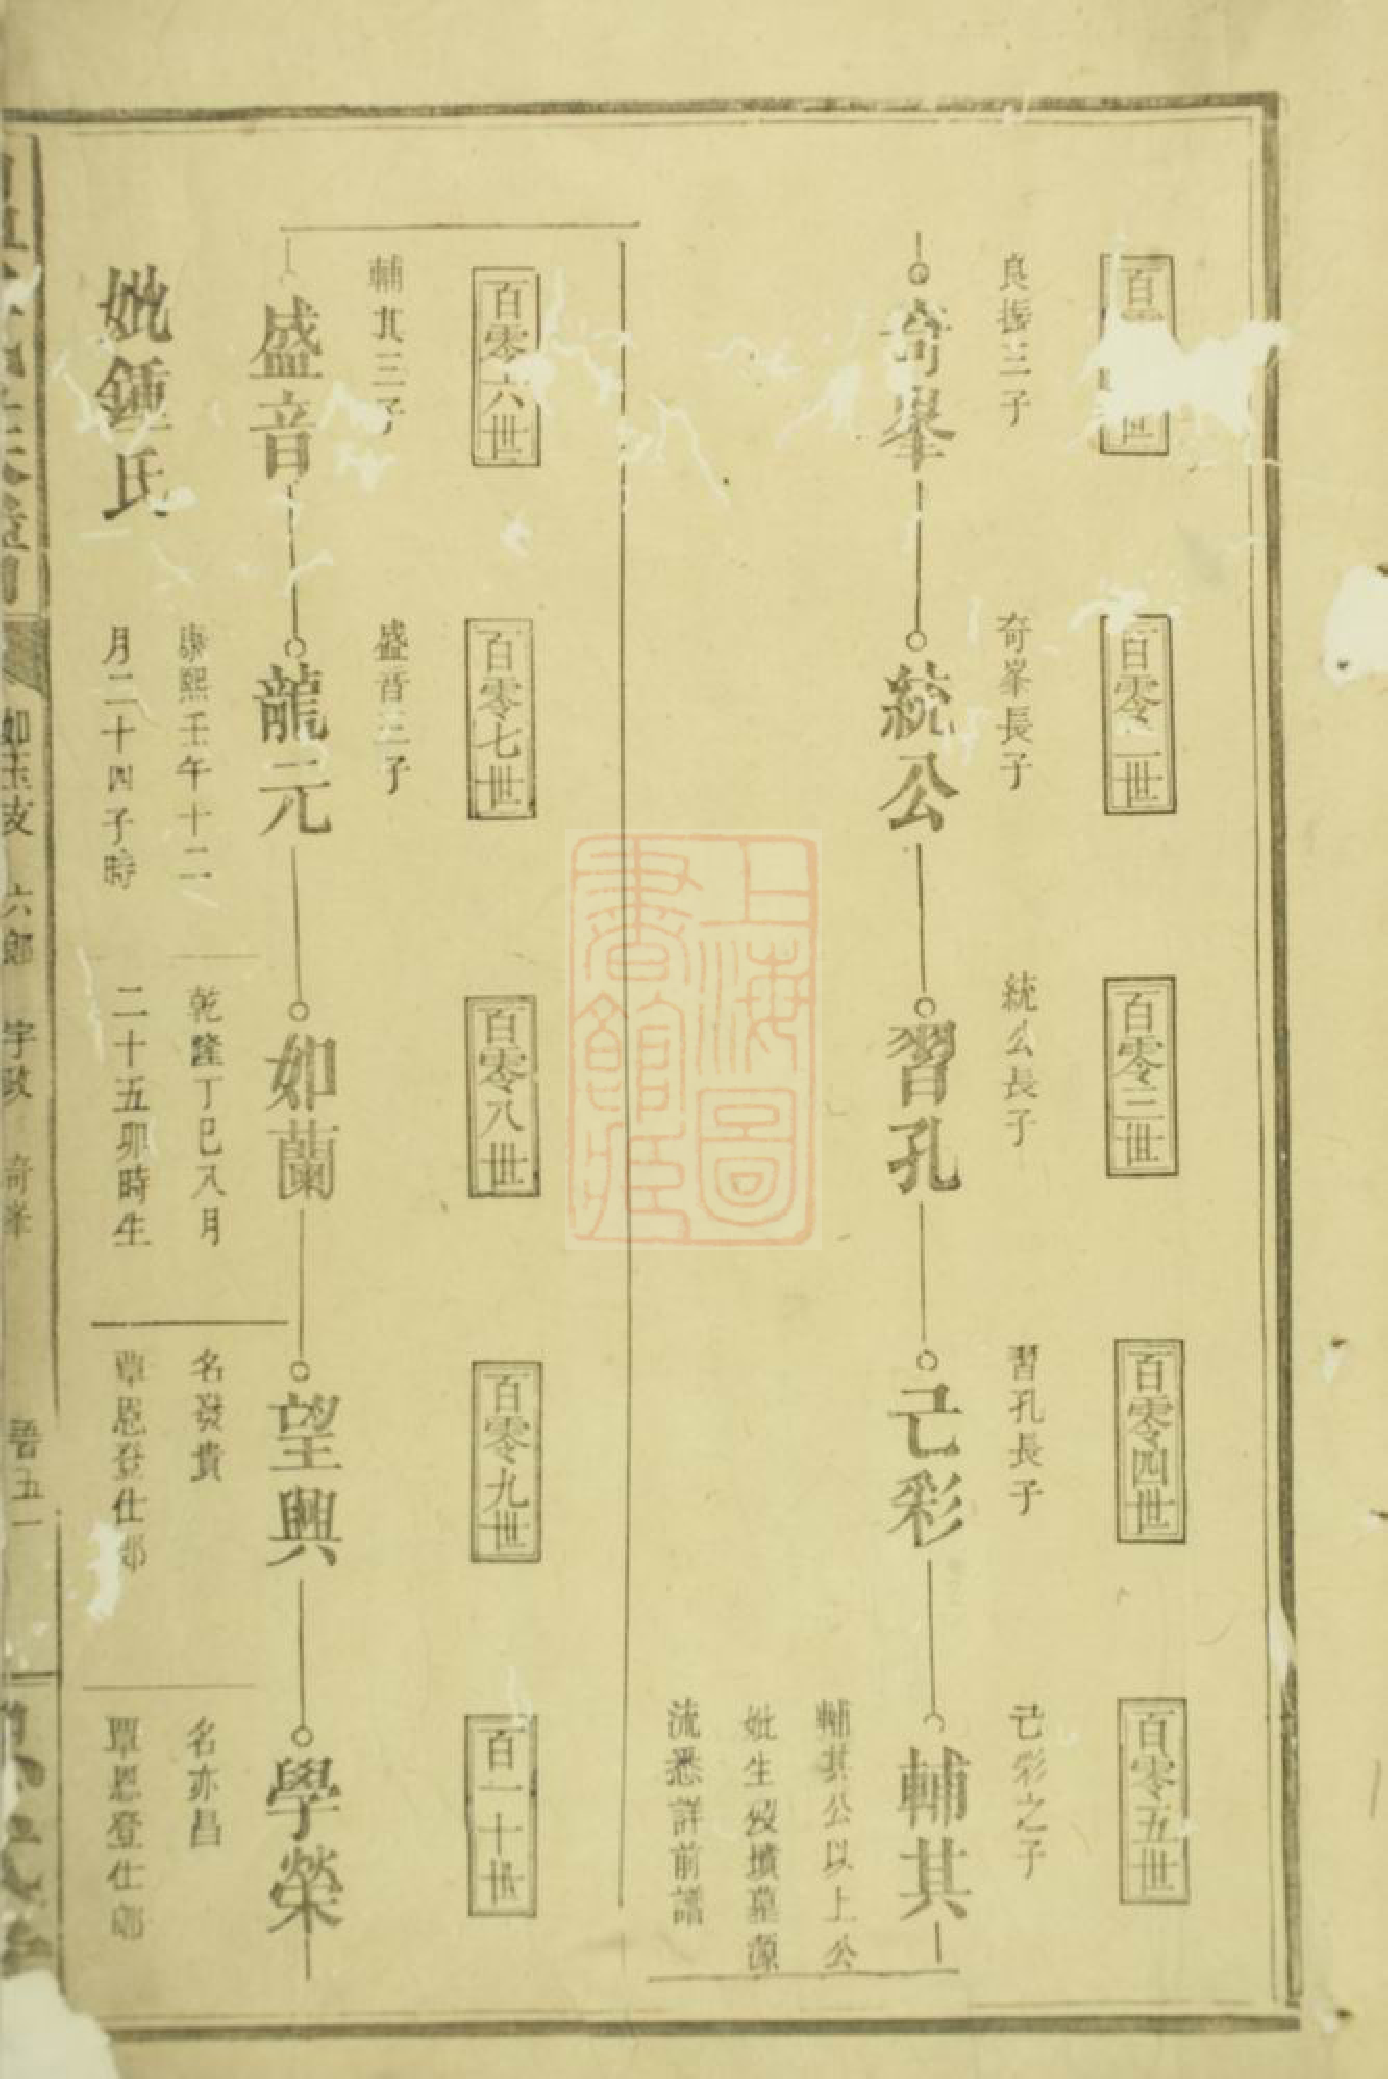 百
良振三子
奇峯
百零二世
奇峯長子
統公
百零三世
統公長子
習孔
百零四世
習孔長子
己彩
百零五世
己彩之子
輔其
輔其公以上公
妣生歿墳墓源
流悉詳前譜
百零六世
輔其三子
盛音
妣鍾氏
百零七世
盛音三子
龍元
康熙壬午十二
月二十四子時
百零八世
如蘭
乾隆丁巳八月
二十五卯時生
百零九世
望興
名發貴
覃恩登仕郎
百一十世
學榮
名亦昌
覃恩登仕郎
如玉支 六郎 宇政 奇峯
五一
上海圖
書館藏